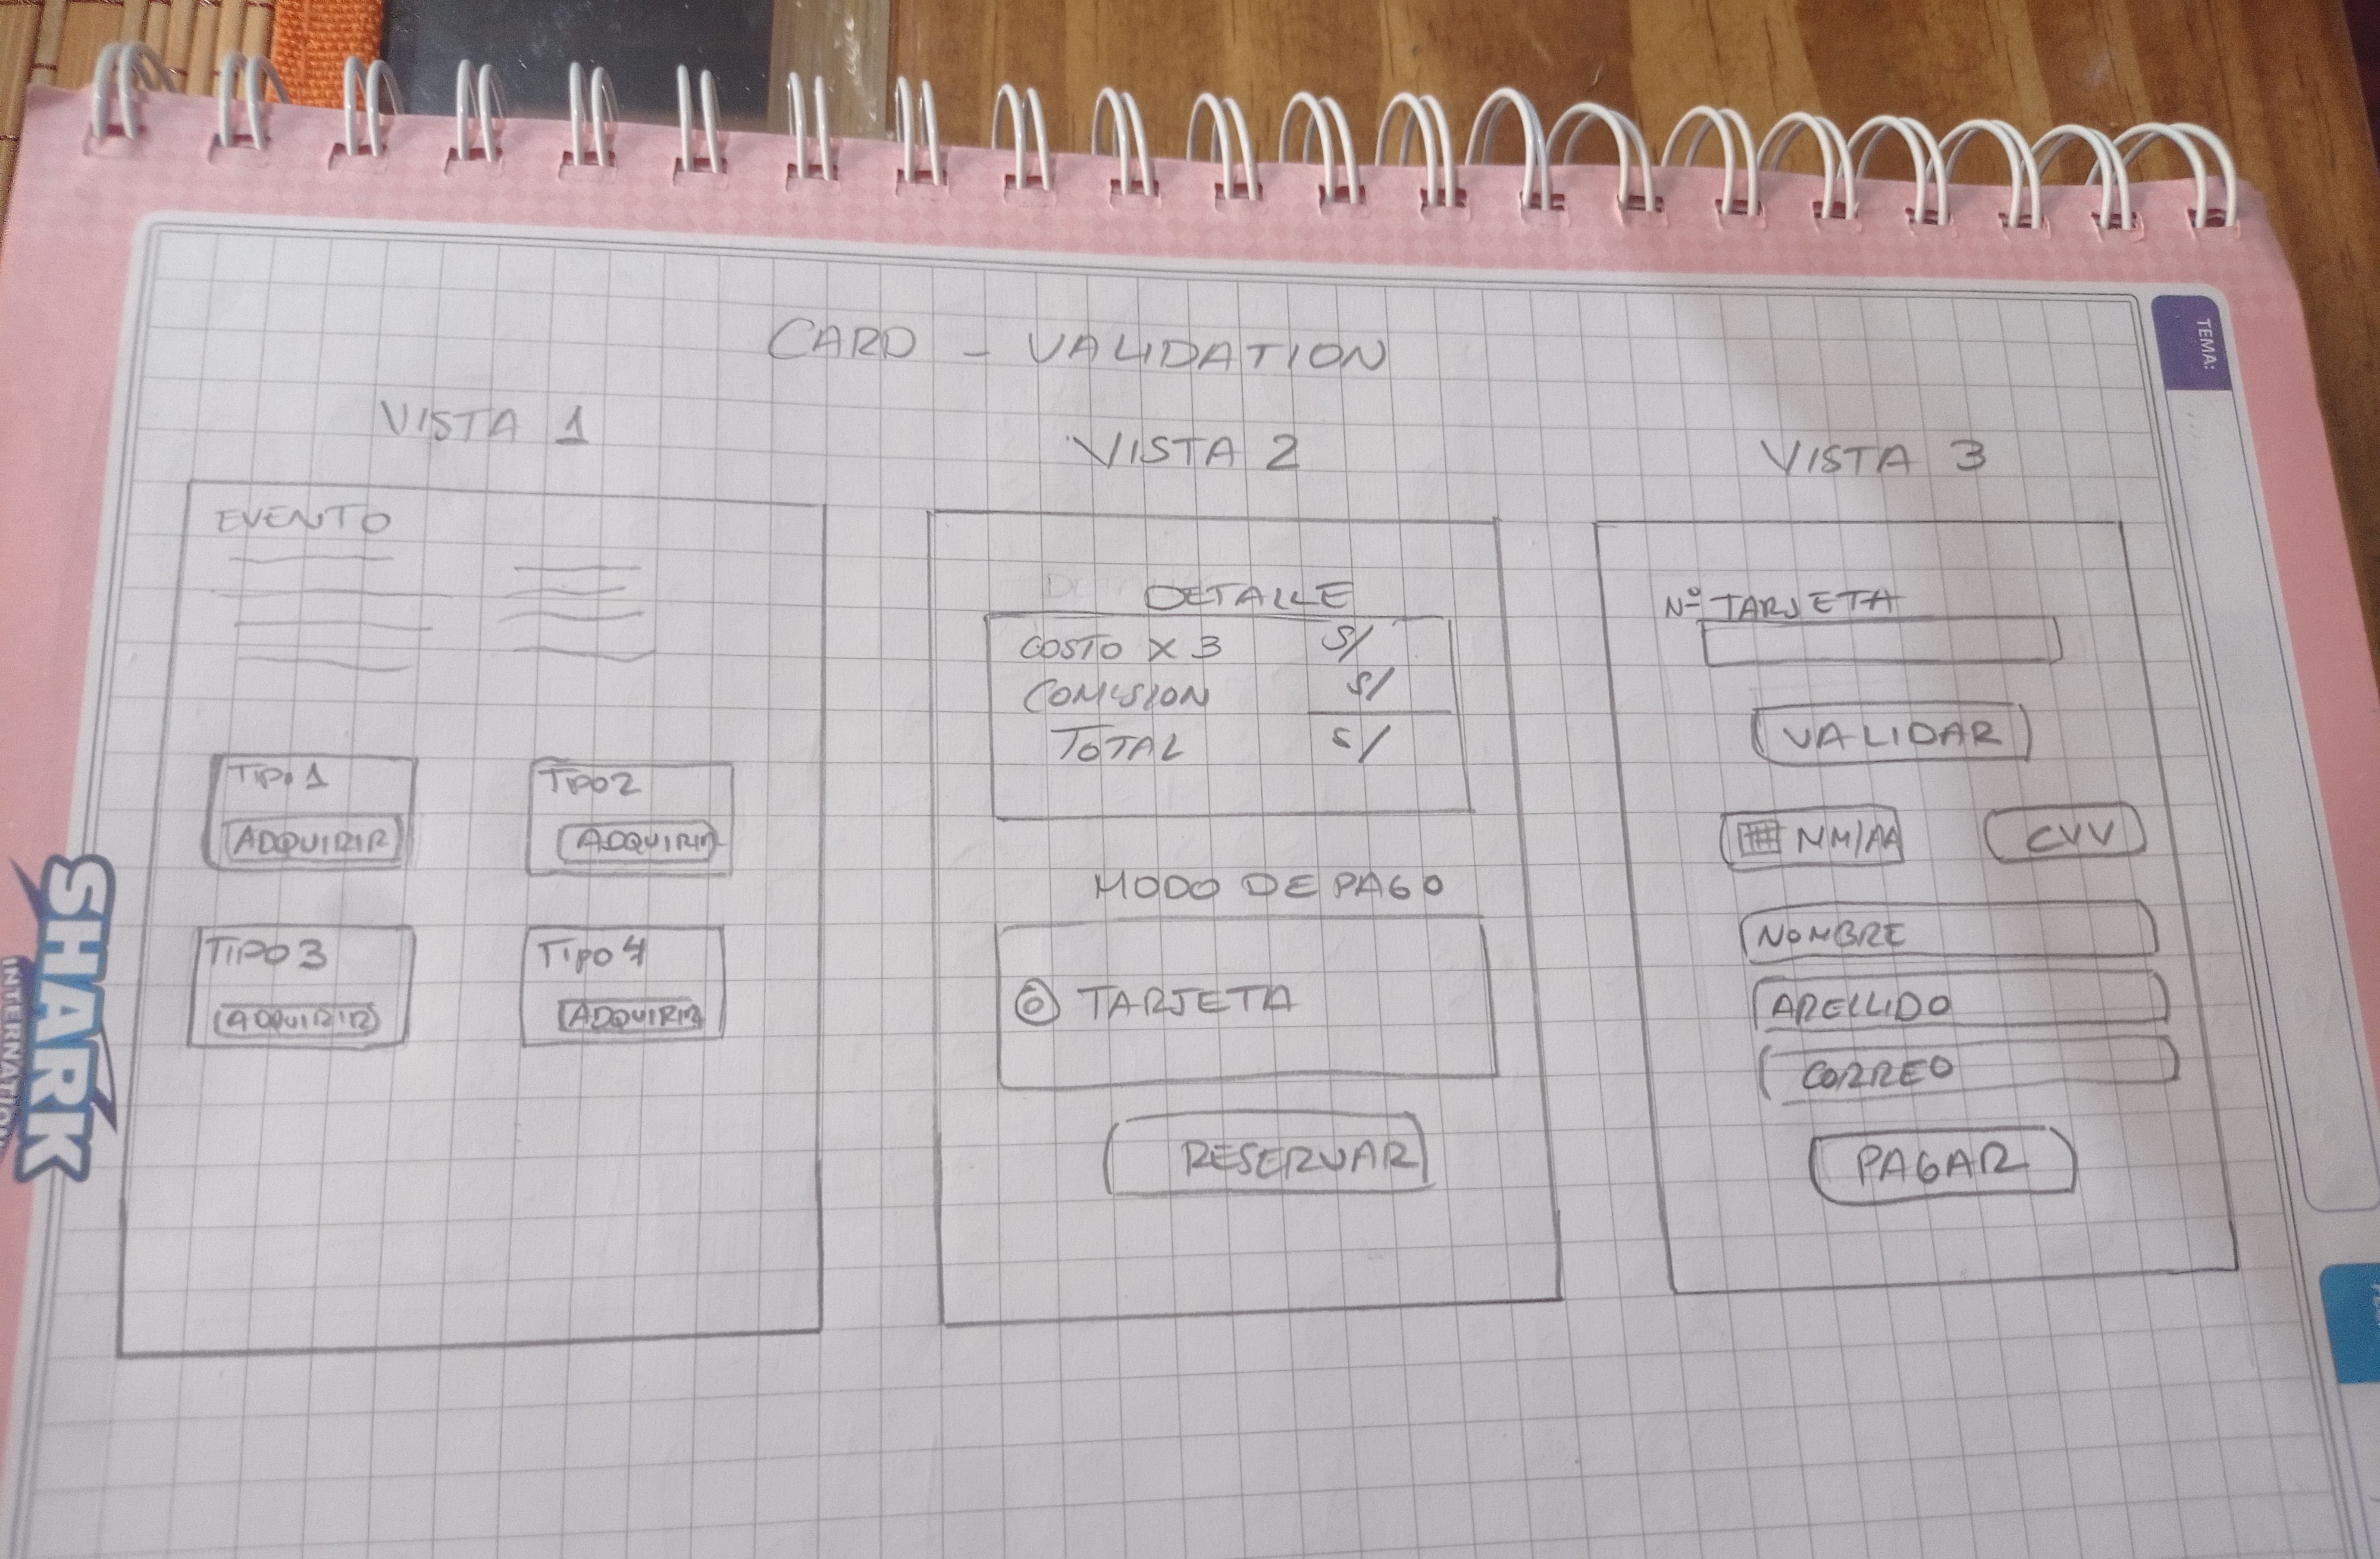 CARD - VALIDATION
VISTA 1
EVENTO
TIPO 1
ADQUIRIR
TIPO2
ADQUIRIR
TIPO 3
ADQUIRIR
TIPO 4
ADQUIRIR
VISTA 2
DETALLE
COSTO X 3 S/
COMISION S/
TOTAL S/
MODO DE PAGO
TARJETA
RESERVAR
VISTA 3
Nº TARJETA
VALIDAR
MM/AA CVV
NOMBRE
APELLIDO
CORREO
PAGAR
TEMA:
SHARK